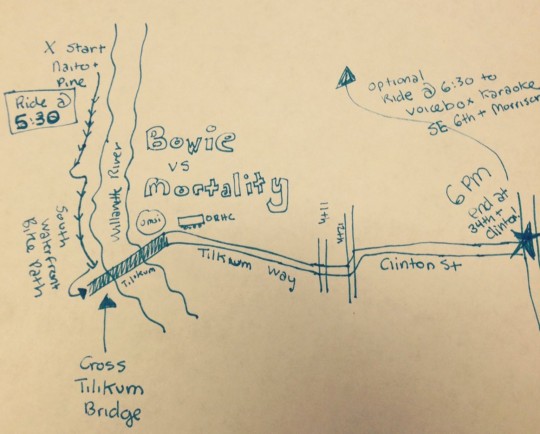 X Start
Naito +
Pine
Ride @
5:30
South
Waterfront
Bike Path
Willamette River
Bowie
vs
Mortality
OMSI
ORHC
Tilikum
Tilikum Way
11th
12th
Clinton St
6 PM
end at
34th + Clinton!
optional
Ride @ 6:30 to
voicebox Karaoke
SE 6th + Morrison
Cross
Tilikum
Bridge